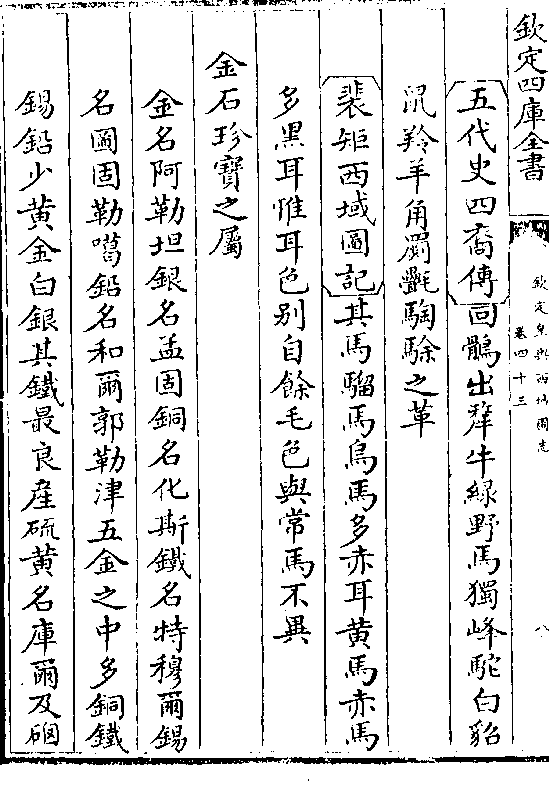 欽定四庫全書
欽定皇輿西域圖志
卷四十三
八
五代史四裔傳回鶻出犛牛綠野馬獨峰駝白貂
䑕羚羊角𥐻騊駼之革
裴矩西域圖記其馬騮馬烏馬多赤耳黃馬赤馬
多黑耳惟耳色别自餘毛色與常馬不異
金石珍寶之屬
金名阿勒坦銀名孟固銅名化斯鐵名特穆爾錫
名圖固勒噶鉛名和爾郭勒津五金之中多銅鐵
錫鉛少黃金白銀其鐵最良産硫黃名庫爾及硇